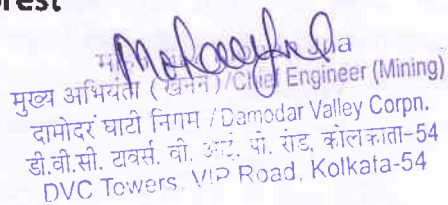 मुख्य अभियंता (खनन) / Chief Engineer (Mining)
दामोदर घाटी निगम / Damodar Valley Corpn.
डी.वी.सी. टावर्स, वी. आई. पी. रोड, कोलकाता-54
DVC Towers, VIP Road, Kolkata-54